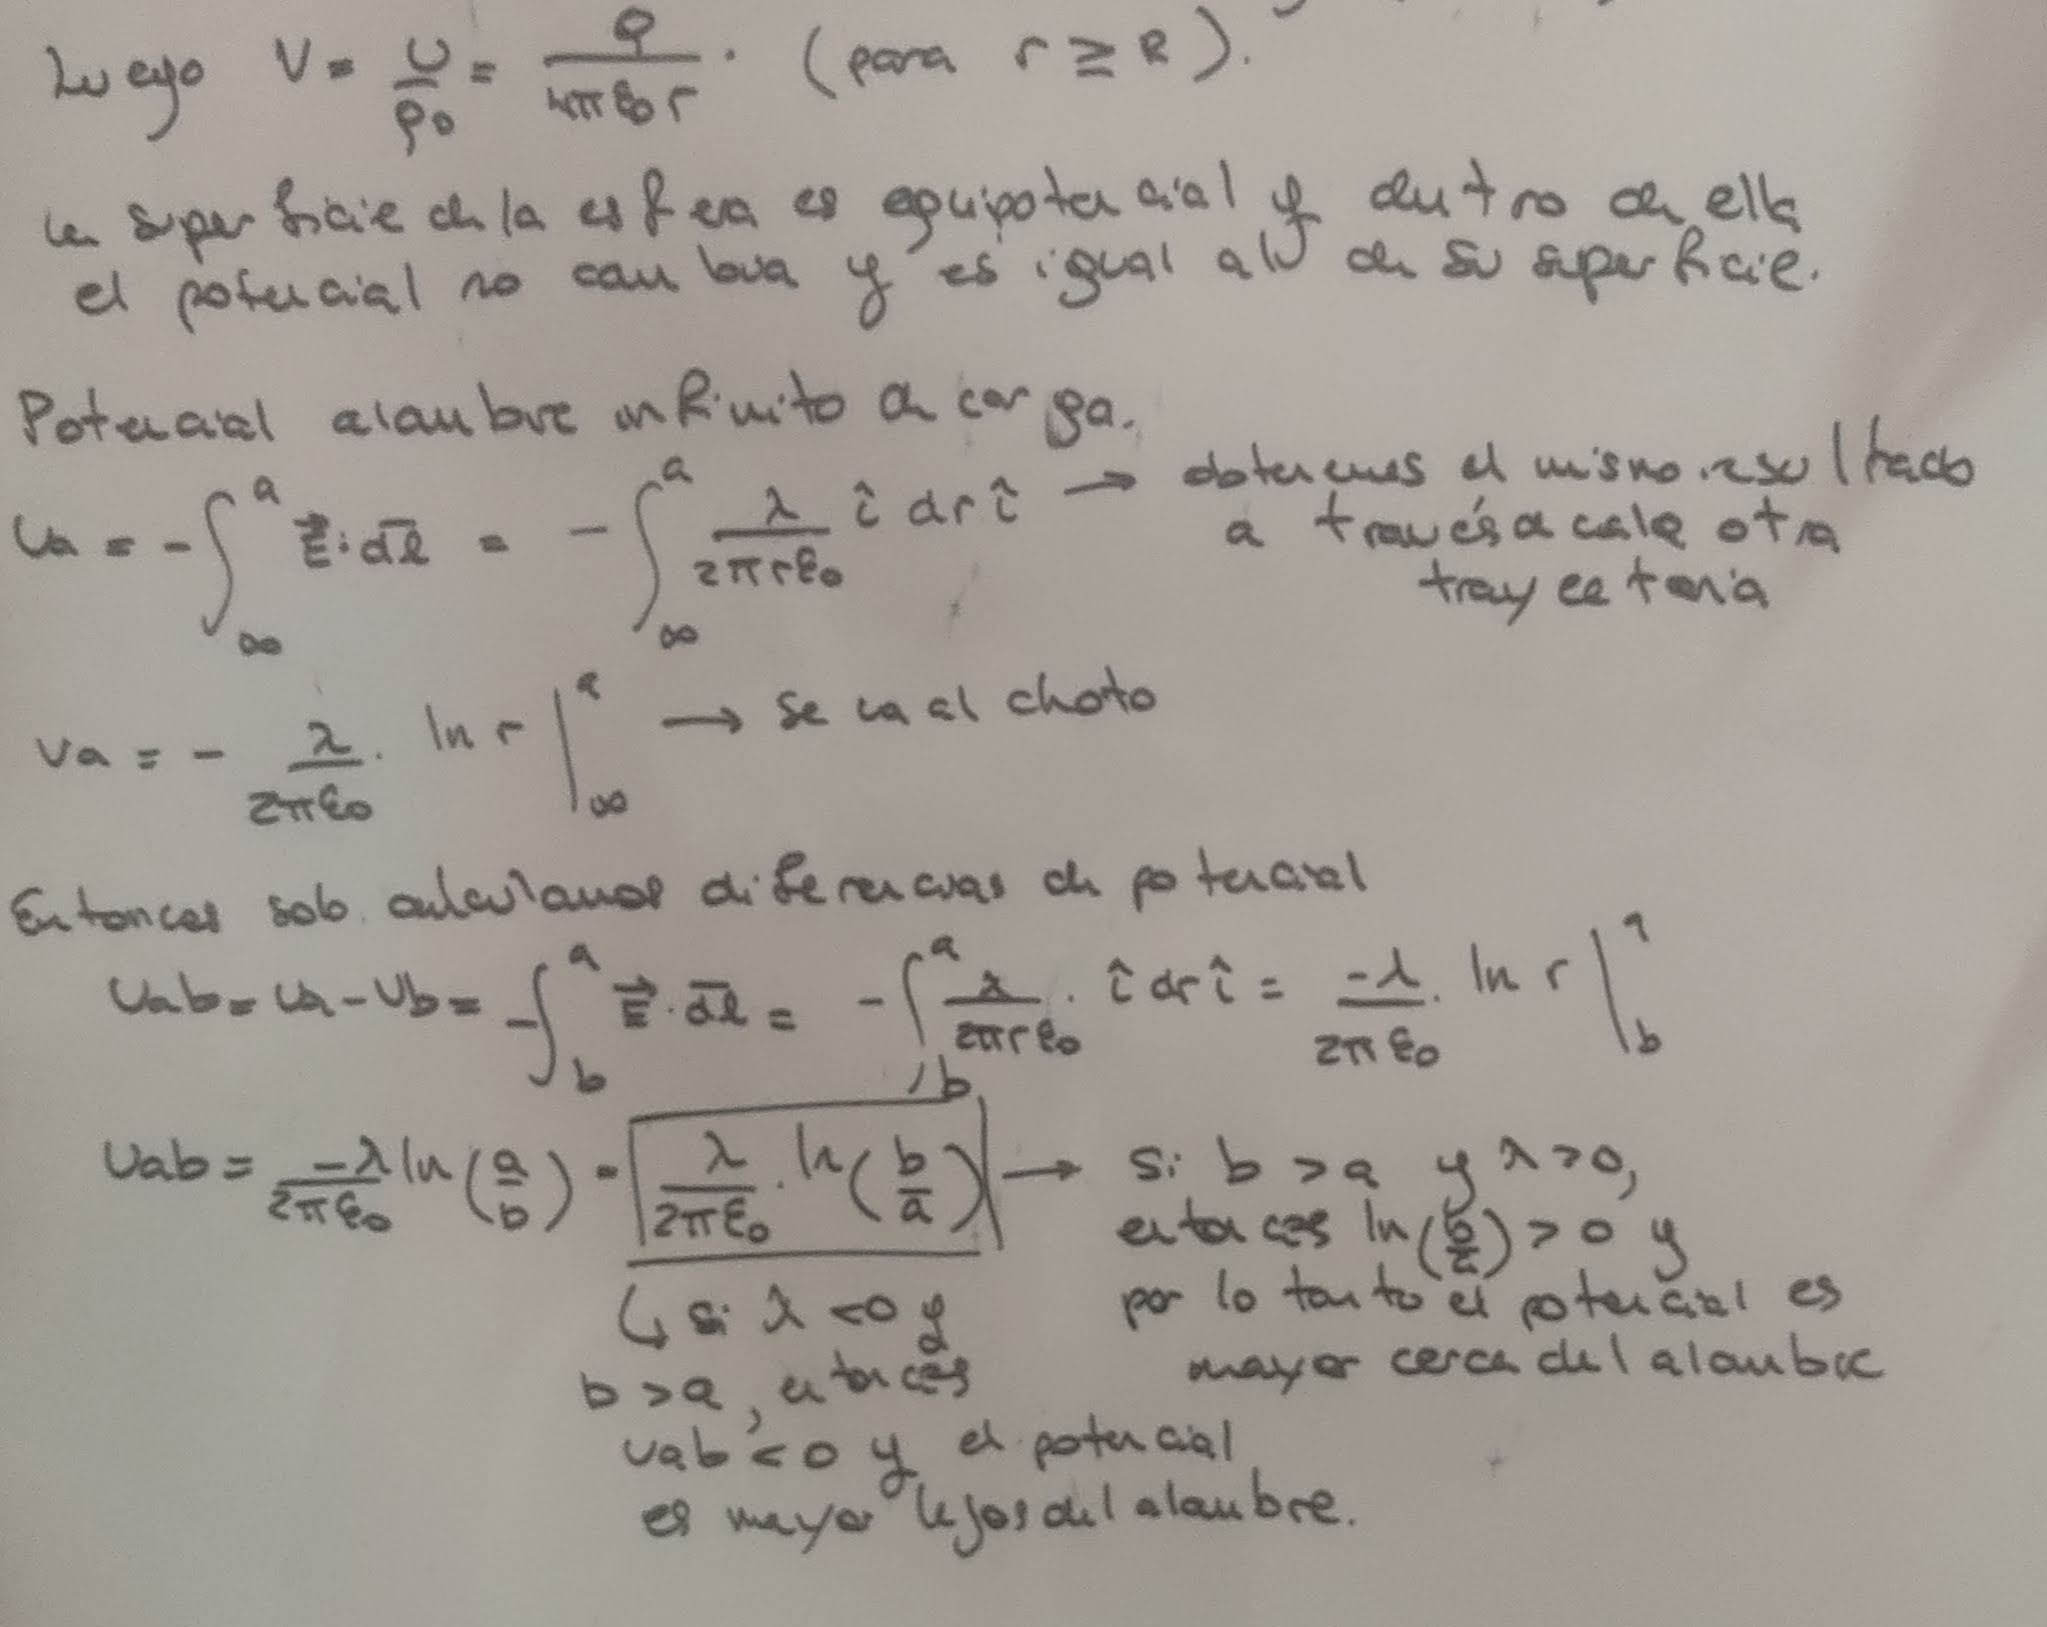 Luego V = U/q0 = Q/4πε0r . (para r ≥ R).
la superficie de la esfera es equipotencial y dentro de ella
el potencial no cambia y es igual al de su superficie.
Potencial alambre infinito de carga.
Va = -∫_∞^a E⃗·d̄l = -∫_∞^a λ/2πrε0 î dr î → obtenemos el mismo resultado
a través de cualq otra
trayectoria
Va = - λ/2πε0 . ln r |_∞^a → se va al choto
Entonces solo calculamos diferencias de potencial
Vab = Va - Vb = -∫_b^a E⃗·d̄l = -∫_b^a λ/2πrε0 . î dr î = -λ/2πε0 . ln r |_b^a
Vab = -λ/2πε0 ln(a/b) = λ/2πε0 . ln(b/a) → si b > a y λ>0,
entonces ln(b/a) > 0 y
por lo tanto el potencial es
mayor cerca del alambre
↳ si λ <0 y
b > a, entonces
Vab < 0 y el potencial
es mayor lejos del alambre.